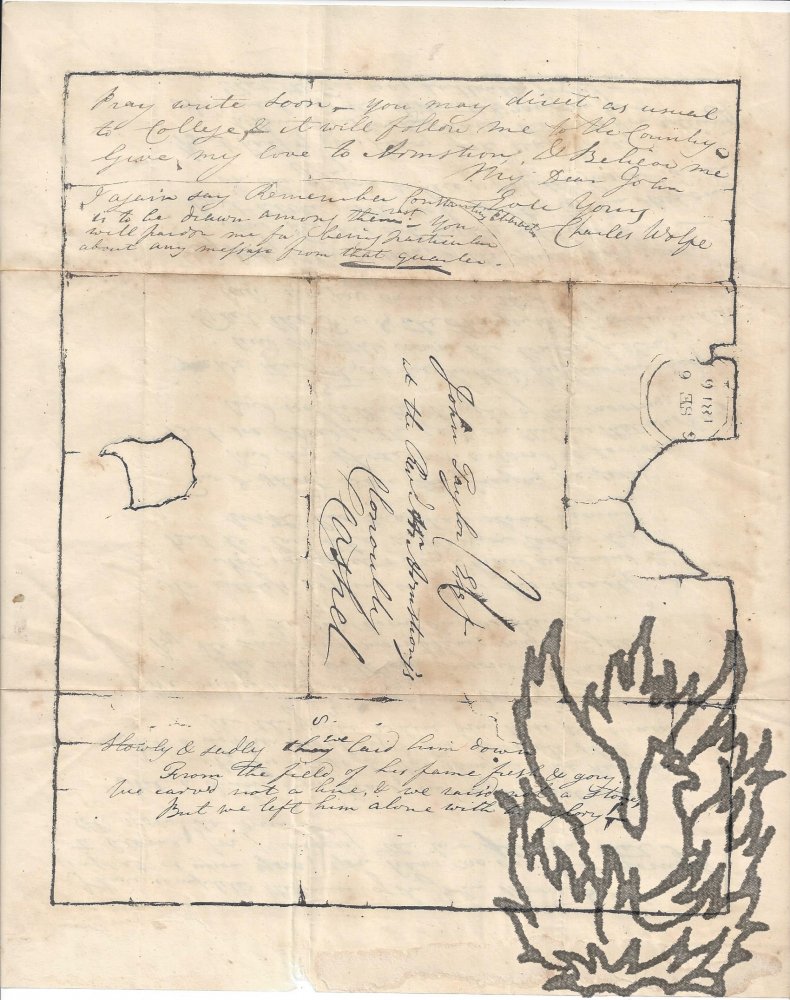 Pray write soon – You may direct as usual
to College, & it will follow me to the Country –
Give my love to Armstrong, & Believe me
My Dear John
Ever Yours
Charles Wolfe
I again say Remember Constantia,
is to be drawn among them – You
will pardon me for being particular
about any message from that quarter.
1816
SE 9
John Taylor Esqr
at the Revd Wm Armstrong's
Clonoulty
Cashel
Slowly & sadly they we laid him down
From the field of his fame fresh & gory,
We carved not a line, & we raised not a stone,
But we left him alone with his glory.